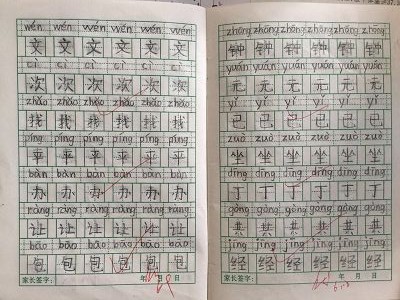 wén wén wén wén wén wén
文 文 文 文 文 文
cì cì cì cì cì cì
次 次 次 次 次 次
zhǎo zhǎo zhǎo zhǎo zhǎo zhǎo
找 找 找 找 找 找
píng píng píng píng píng píng
平 平 平 平 平 平
bàn bàn bàn bàn bàn bàn
办 办 办 办 办 办
ràng ràng ràng ràng ràng ràng
让 让 让 让 让 让
bāo bāo bāo bāo bāo bāo
包 包 包 包 包 包
家长签字: 年 月 日
zhōng zhōng zhōng zhōng zhōng zhōng
钟 钟 钟 钟 钟 钟
yuán yuán yuán yuán yuán yuán
元 元 元 元 元 元
yǐ yǐ yǐ yǐ yǐ yǐ
已 已 已 已 已 已
zuò zuò zuò zuò zuò zuò
坐 坐 坐 坐 坐 坐
dīng dīng dīng dīng dīng dīng
丁 丁 丁 丁 丁 丁
gòng gòng gòng gòng gòng gòng
共 共 共 共 共 共
jīng jīng jīng jīng jīng jīng
经 经 经 经 经 经
家长签字: 年 月 日